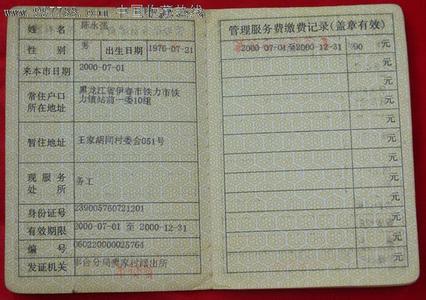 姓 名 陈永强
性 别 男 出生日期 1976-07-21
来本市日期 2000-07-01
常住户口所在地址 黑龙江省伊春市铁力市铁
力镇站前一委10组
暂住地址 王家胡同村委会051号
现服务处所 务工
身份证号 239005760721201
有效期限 2000-07-01 至 2000-12-31
编 号 060220000025764
发证机关 丰台分局 村派出所
管理服务费缴费记录(盖章有效)
2000-07-01至2000-12-31 90 元
元
元
元
元
元
元
元
元
元
元
元